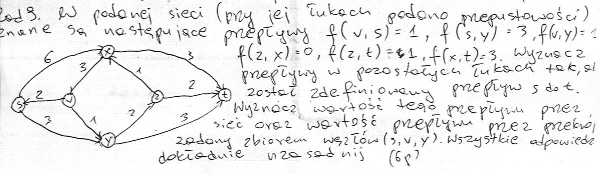 Zad 3. W podanej sieci (przy jej łukach podano przepustowości)
znane są następujące przepływy f(v,s)=1, f(s,y)=3, f(v,y)=
f(z,x)=0, f(z,t)=1, f(x,t)=3. Wyznacz
przepływy w pozostałych łukach tak, aby
został zdefiniowany przepływ s do t.
Wyznacz wartość tego przepływu przez
sieć oraz wartość przepływu przez przekrój
zadany zbiorem węzłów (s,v,y). Wszystkie odpowiedzi
dokładnie uzasadnij (6p)
x
6
3
1
3
s
2
v
z
2
t
3
1
2
3
y